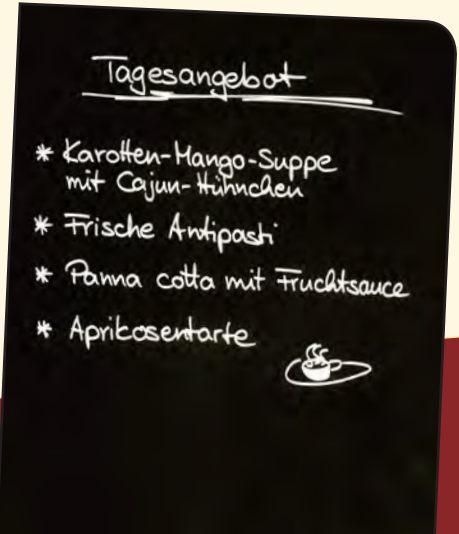 Tagesangebot
* Karotten-Mango-Suppe
mit Cajun-Hühnchen
* Frische Antipasti
* Panna cotta mit Fruchtsauce
* Aprikosentarte